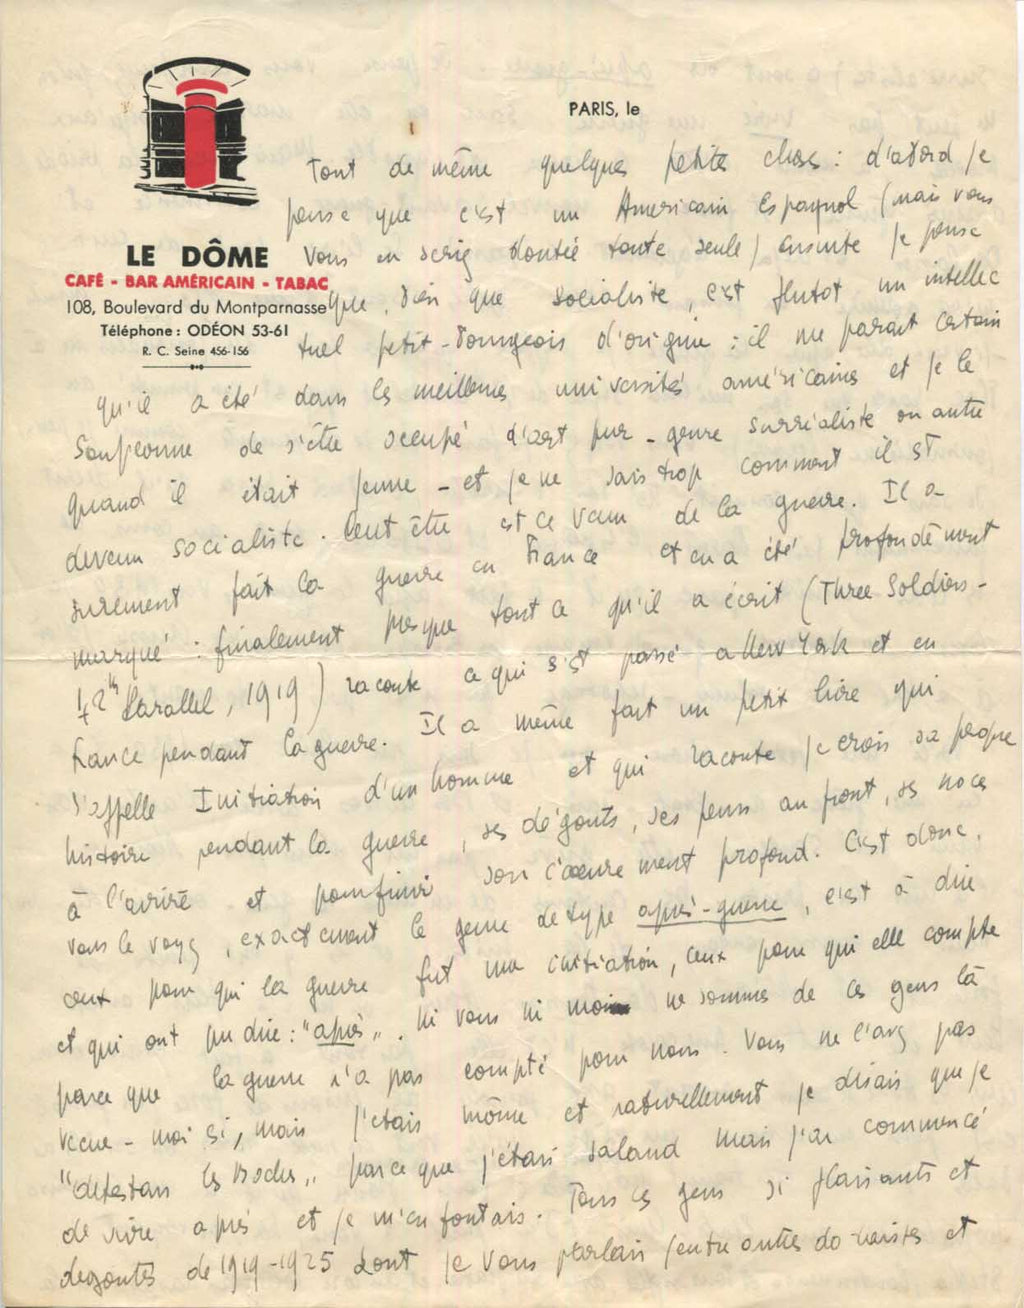 PARIS, le
LE DÔME
CAFÉ - BAR AMÉRICAIN - TABAC
108, Boulevard du Montparnasse
Téléphone : ODÉON 53-61
R. C. Seine 456-156
Tout de même quelques petites choses : d'abord je
pense que c'est un Americain Espagnol (mais vous
vous en seriez doutée toute seule) ensuite je pense
que, bien que socialiste, c'est plutot un intellec
tuel petit-bourgeois d'origine : il me parait certain
qu'il a été dans les meilleures universités américaines et je le
soupconne de s'être occupé d'art pur - genre surréaliste ou autre
quand il était jeune - et je ne sais trop comment il est
devenu socialiste. Peut être est ce venu de la guerre. Il a
surement fait la guerre en France et en a été profondément
marqué : finalement presque tout ce qu'il a écrit (Three Soldiers -
42th Parallel, 1919) raconte ce qui s'est passé a New York et en
France pendant la guerre. Il a même fait un petit livre qui
s'appelle Initiation d'un homme et qui raconte je crois sa propre
histoire pendant la guerre, ses dégouts, ses peurs au front, ses noces
à l'arrière et pour finir son écœurement profond. C'est donc,
vous le voyez, exactement le genre de type après-guerre, c'est à dire
ceux pour qui la guerre fut une initiation, ceux pour qui elle compte
et qui ont pu dire : "après". Ni vous ni moi ne sommes de ces gens là
parce que la guerre n'a pas compté pour nous. Vous ne l'avez pas
vecue - moi si, mais j'étais môme et naturellement je disais que je
"détestais les Boches" parce que j'étais salaud mais j'ai commencé
de vivre après et je m'en foutais. Tous ces gens si plaisants et
degoutés de 1919-1925 dont je vous parlais (entre autres da-daistes et